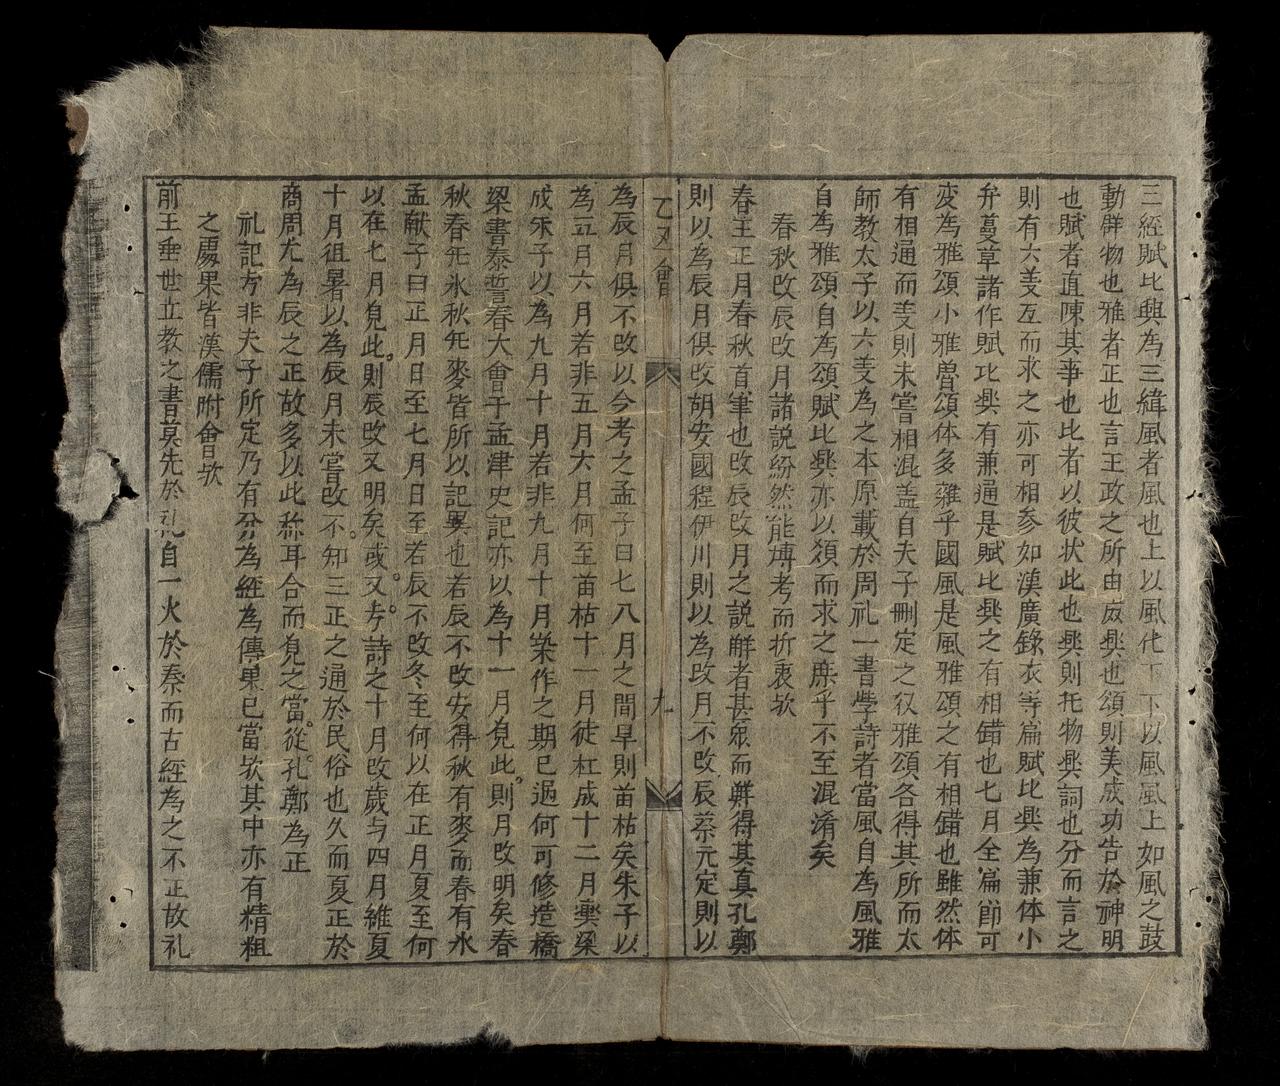 三經賦比興為三緯風者風也上以風化下下以風風上如風之鼓
動群物也雅者正也言王政之所由废興也頌則美成功告於神明
也賦者直陳其事也比者以彼状此也興則托物興詞也分而言之
則有六义互而求之亦可相参如漢廣錄衣等篇賦比興為兼体小
弁蔓草諸作賦比興有兼通是賦比興之有相錯也七月全篇節可
变為雅頌小雅魯頌体多雜乎國風是風雅頌之有相錯也雖然体
有相通而义則未嘗相混盖自夫子刪定之後雅頌各得其所而太
師教太子以六义為之本原載於周礼一書學詩者當風自為風雅
自為雅頌自為頌賦比興亦以須而求之庶乎不至混淆矣
春秋改辰改月諸説紛然能博考而折衷欤
春王正月春秋首筆也改辰改月之説觧者甚衆而鮮得其真孔鄭
則以為辰月俱改胡安國程伊川則以為改月不改辰蔡元定則以
乙丑會 九
為辰月俱不改以今考之孟子曰七八月之間旱則苗枯矣朱子以
為五月六月若非五月六月何至苗枯十一月徒杠成十二月輿梁
成朱子以為九月十月若非九月十月築作之期已過何可修造橋
梁書泰誓春大會于孟津史記亦以為十一月見此則月改明矣春
秋春无氷秋无麥皆所以記異也若辰不改安得秋有麥而春有氷
孟献子曰正月日至七月日至若辰不改冬至何以在正月夏至何
以在七月見此則辰改又明矣或又考詩之十月改歲与四月維夏
十月徂暑以為辰月未嘗改不知三正之通於民俗也久而夏正於
商周尤為辰之正故多以此称耳合而見之當從孔鄭為正
礼記旁非夫子所定乃有分為經為傳果已當欤其中亦有精粗
之處果皆漢儒附會欤
前王垂世立教之書莫先於礼自一火於秦而古經為之不正故礼